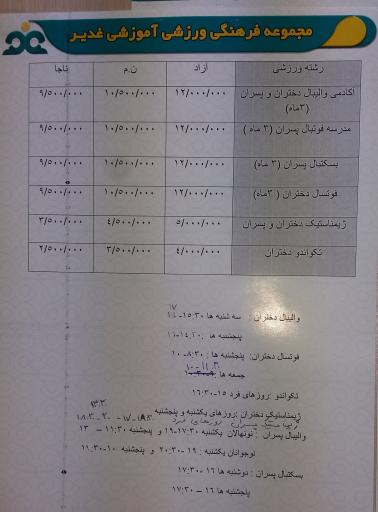 مجموعه فرهنگی ورزشی آموزشی غدیر
رشته ورزشی آزاد ن.م ناجا
اکادمی والیبال دختران و پسران (۳ماه) ۱۲/۰۰۰/۰۰۰ ۱۰/۵۰۰/۰۰۰ ۹/۵۰۰/۰۰۰
مدرسه فوتبال پسران (۳ ماه ) ۱۲/۰۰۰/۰۰۰ ۱۰/۵۰۰/۰۰۰ ۹/۵۰۰/۰۰۰
بسکتبال پسران (۳ ماه) ۱۲/۰۰۰/۰۰۰ ۱۰/۵۰۰/۰۰۰ ۹/۵۰۰/۰۰۰
فوتسال دختران ( ۳ماه) ۱۲/۰۰۰/۰۰۰ ۱۰/۵۰۰/۰۰۰ ۹/۵۰۰/۰۰۰
ژیمناستیک دختران و پسران ۵/۰۰۰/۰۰۰ ۴/۵۰۰/۰۰۰ ۳/۵۰۰/۰۰۰
تکواندو دختران ۴/۰۰۰/۰۰۰ ۳/۵۰۰/۰۰۰ ۲/۵۰۰/۰۰۰
والیبال دختران : سه شنبه ها ۱۵:۳۰-۱۷
پنجشنبه ها :
فوتسال دختران: پنجشنبه ها : ۸:۳۰- ۱۰
جمعه ها
تکواندو :روزهای فرد ۱۵-۱۶:۳۰
ژیمناستیک دختران :روزهای یکشنبه و پنجشنبه
پسران روزهای فرد
والیبال پسران : نونهالان یکشنبه ۱۷:۳۰-۱۹ و پنجشنبه ۱۱:۳۰ – ۱۳
نوجوانان یکشنبه : ۱۹ -۲۰:۳۰ و پنجشنبه ۱۰-۱۱:۳۰
بسکتبال پسران : دوشنبه ها ۱۶ -۱۷:۳۰
پنجشنبه ها ۱۶ – ۱۷:۳۰